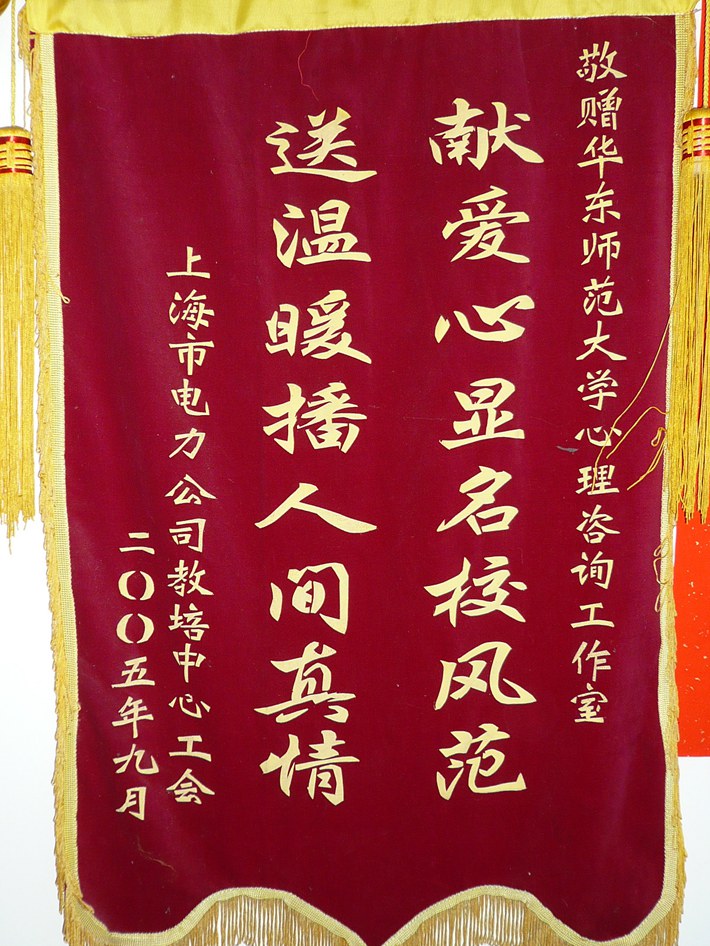 敬赠华东师范大学心理咨询工作室
献爱心显名校风范
送温暖播人间真情
上海市电力公司教培中心工会
二〇〇五年九月